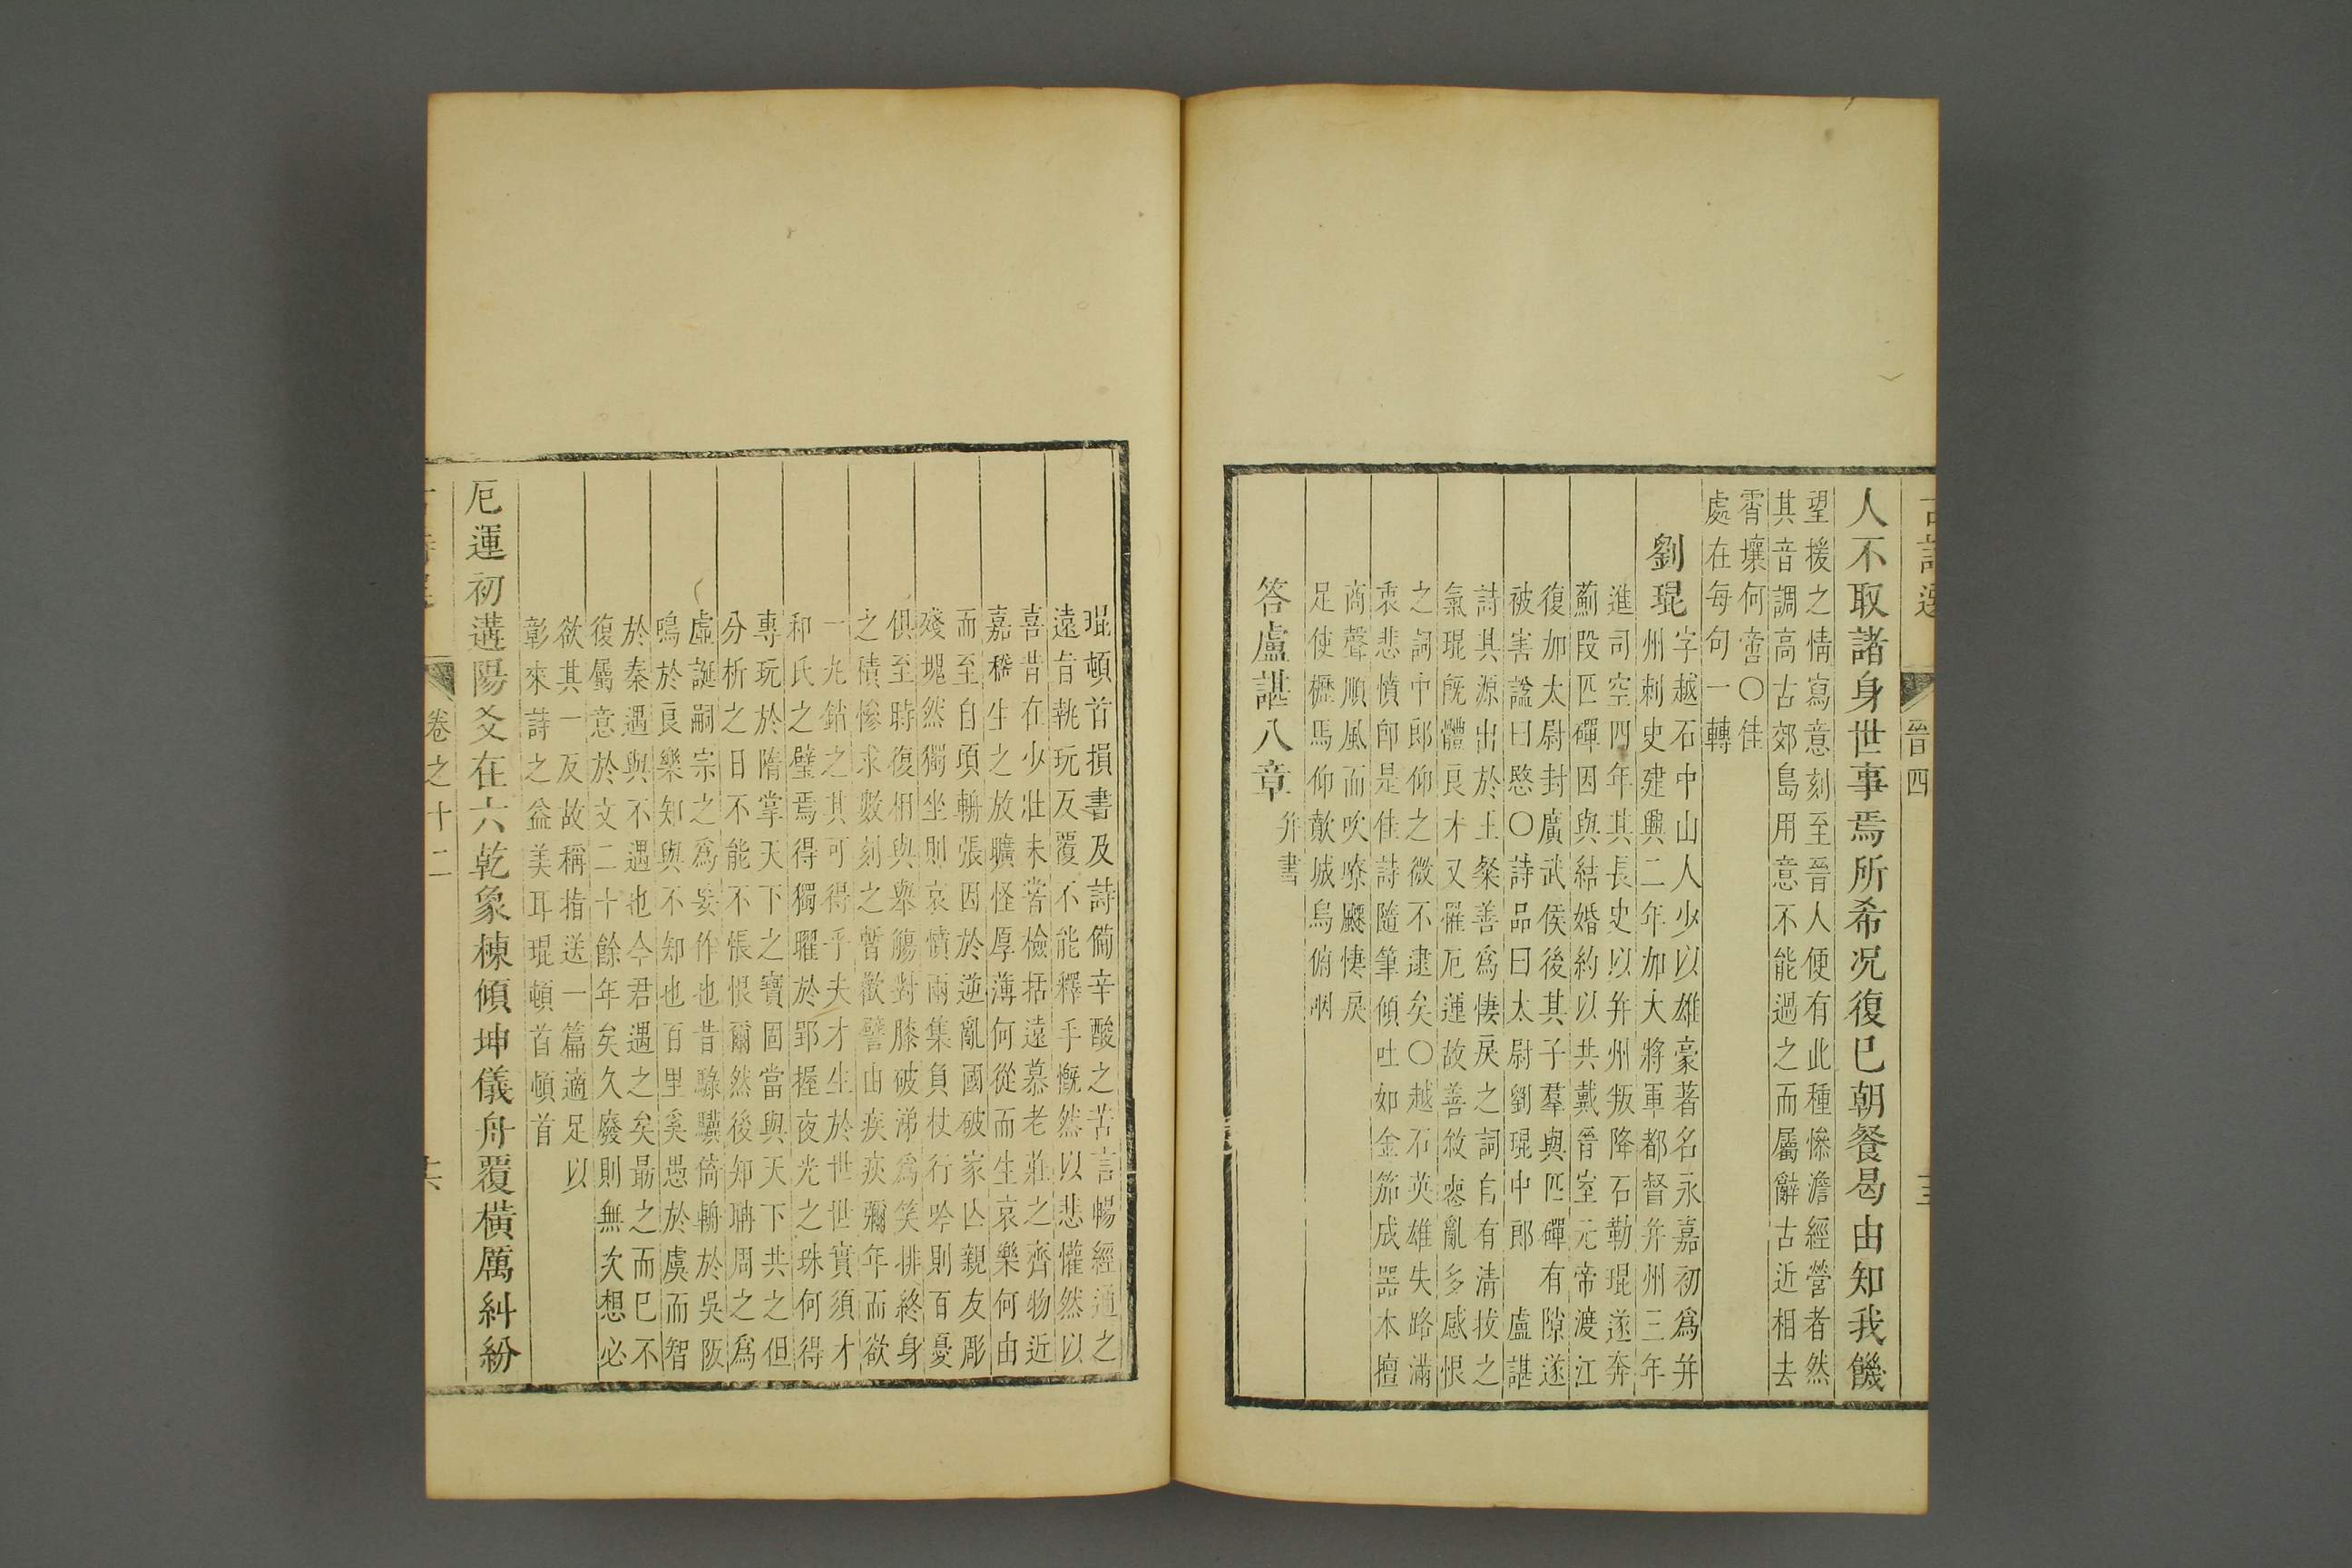 人不取諸身世事焉所希况復已朝餐曷由知我饑
望援之情寫意刻至晉人便有此種慘澹經營者然
其音調高古郊島用意不能過之而屬辭古近相去
霄壤何啻〇佳
處在每句一轉
劉琨
字越石中山人少以雄豪著名永嘉初爲并
州刺史建興二年加大將軍都督并州三年
進司空四年其長史以并州叛降石勒琨遂奔
薊段匹磾因與結婚約以共戴晉室元帝渡江
復加太尉封廣武侯後其子羣與匹磾有隙遂
被害諡曰愍〇詩品曰太尉劉琨中郎盧諶
詩其源出於王粲善爲悽戾之詞自有清拔之
氣琨旣體良才又罹厄運故善敘喪亂多感恨
之詞中郎仰之微不逮矣〇越石英雄失路滿
衷悲憤卽是佳詩隨筆傾吐如金笳成器木擅
商聲順風而吹嘹飃悽戾
足使櫪馬仰歕城烏俯咽
答盧諶八章
并書
晉四
琨頓首損書及詩備辛酸之苦言暢經通之
遠旨執玩反覆不能釋手慨然以悲懽然以
喜昔在少壯未嘗檢括遠慕老莊之齊物近
嘉稽生之放曠怪厚薄何從而生哀樂何由
而至自項輈張因於逆亂國破家亾親友彫
殘塊然獨坐則哀憤兩集負杖行吟則百憂
俱至時復相與舉觴對膝破涕爲笑排終身
之積慘求數刻之暫歡譬由疾疢彌年而欲
一丸銷之其可得乎夫才生於世世實須才
和氏之璧焉得獨曜於郢握夜光之珠何得
專玩於隋掌天下之寶固當與天下共之但
分析之日不能不悵恨爾然後知聃周之爲
虛誕嗣宗之爲妄作也昔騄驥倚輈於吳阪
鳴於良樂知與不知也百里奚愚於虞而智
於秦遇與不遇也今君遇之矣勗之而已不
復屬意於文二十餘年矣久廢則無次想必
欲其一反故稱指送一篇適足以
彰來詩之益美耳琨頓首頓首
厄運初遘陽爻在六乾象棟傾坤儀舟覆橫厲糾紛
卷之十二